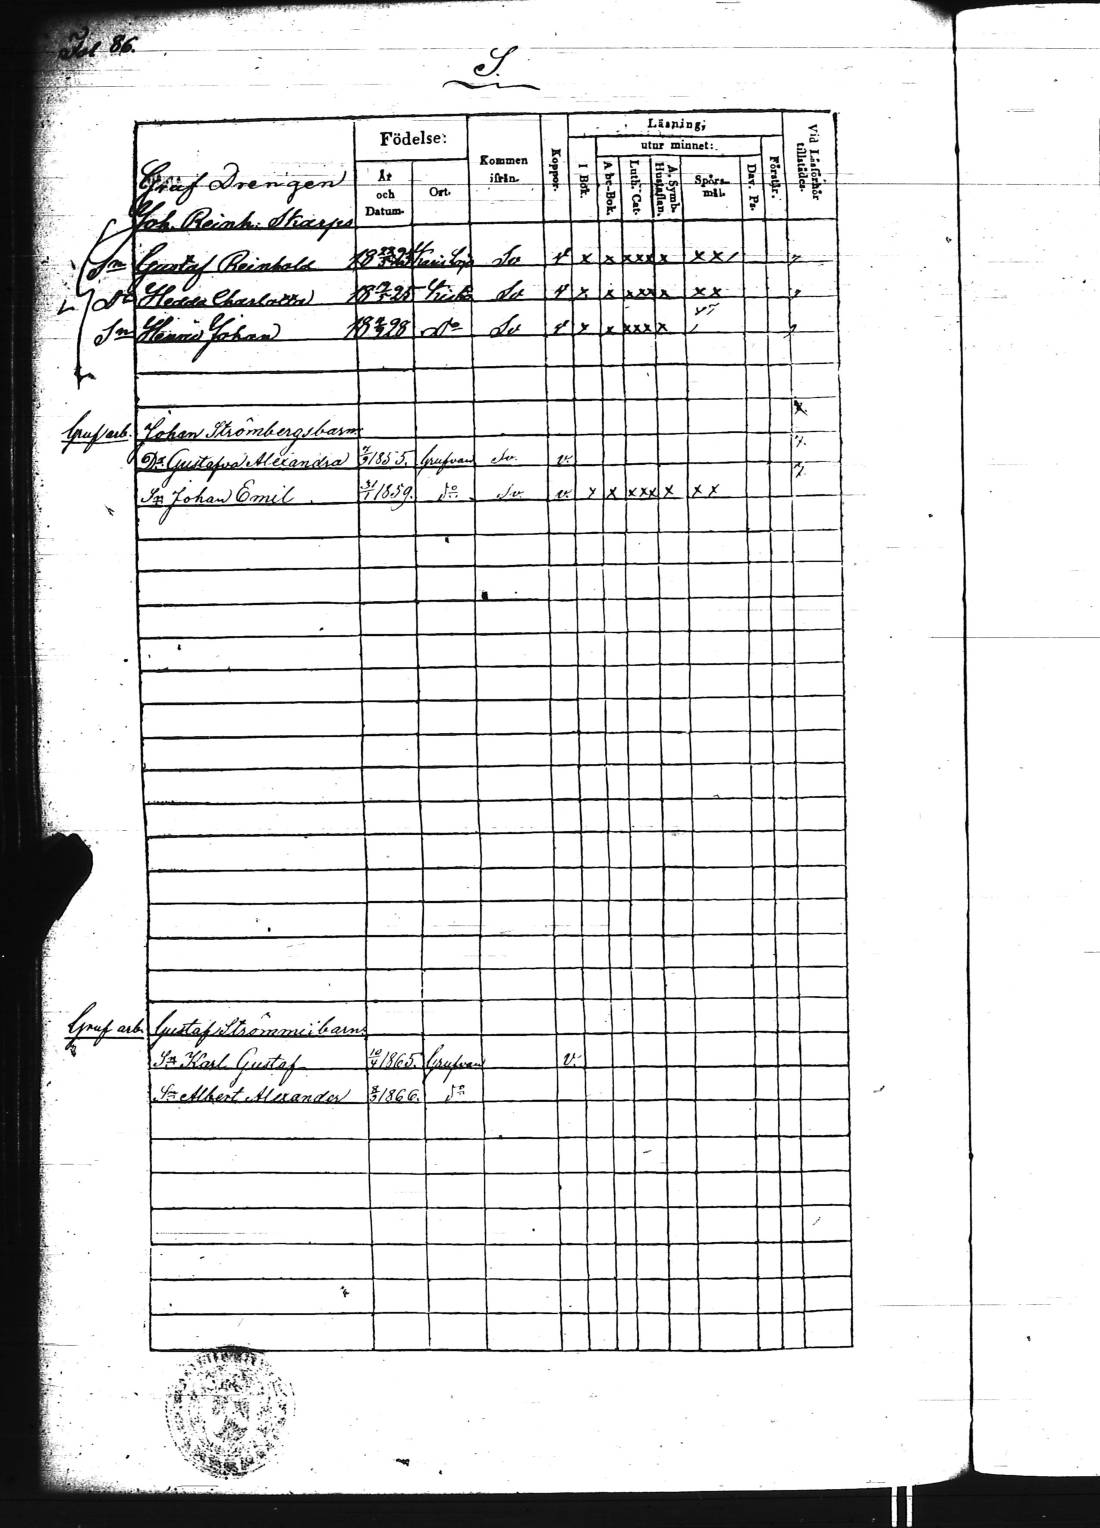 Fol 86.
S.
Födelse:
Läsning;
utur minnet:
År och Datum.
Ort.
Kommen ifrån.
Koppor.
I Bok.
A bc-Bok.
Luth: Cat.
A. Symb. Hustaflan.
Spörs-mål.
Dav. Ps.
Förstår.
Vid Läsförhör tillstädes.
Gruf Drengen
Joh. Reinh: Skarps
Sn Gustaf Reinhold
Dr Hedda Charlotta 25 So v x x xxx x xx
Sn Henric Johan 28 Do So v x x xxx x
Grufarb. Johan Strömbergs barn
Dr Gustafva Alexandra 1855. Grufvan So. v.
Sn Johan Emil. 31/1 1859. Do So. v. x x xxx x xx
Gruf arb. Gustaf Strömmis barn
Sn Karl Gustaf 10/4 1865. Grufvan v.
Sn Albert Alexander 8/3 1866. Do